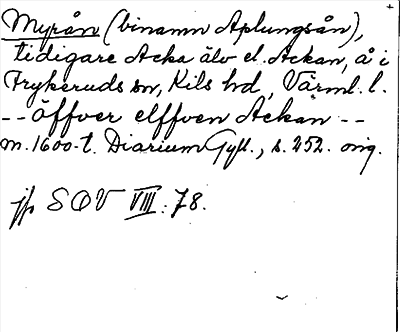 Myrån (binamn Aplungsån),
tidigare Acka älv el. Ackan, å i
Frykeruds sn, Kils hd, Värml. l.
-- åffver elffven Ackan --
m. 1600-t. Diarium Gyll., s. 252. orig.
jfr SOV VIII: 78.